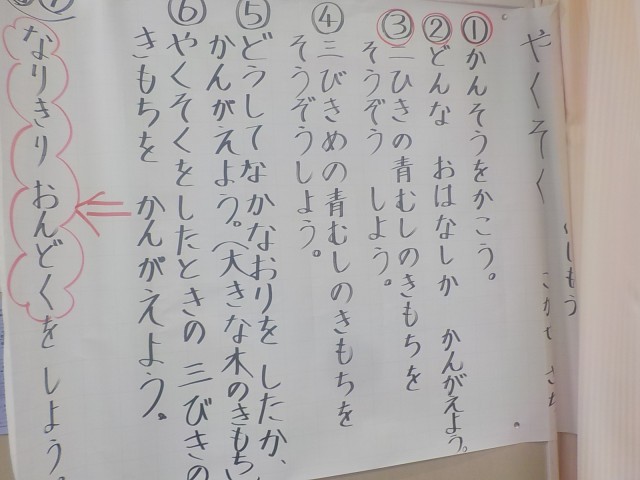 やくそく
①かんそうをかこう。
②どんな おはなしか かんがえよう。
③二ひきの青むしのきもちを
そうぞう しよう。
④三びきめの青むしのきもちを
そうぞうしよう。
⑤どうしてなかなおりを したか、
かんがえよう。(大きな木のきもち
⑥やくそくをしたときの 三びきの
きもちを かんがえよう。
⑦
なりきり おんどくを しよう。